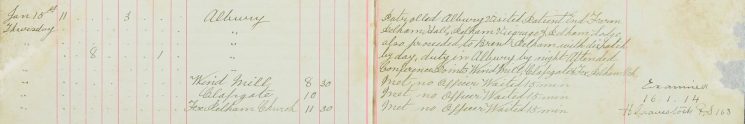 Jan 15th 11 3 Albury Duty etted Albury Visited Patient End Farm
Thursday " Pelham Hall, Pelham Vicarage & Pelham Lodge,
" 8 1 " also proceeded to Brent Pelham with dispatch
" " by day, duty in Albury by night Attended
" " Conference Points Wind Mill, Clapgate, Fx Pelham Ch,
" Wind Mill 8 30 Met no Officer Waited 15 min
" Clapgate 10 Met no Officer Waited 15 min
" Fx Pelham Church 11 30 Met no Officer Waited 15 min
Examined
16.1.14
H Gravestock P.S 163